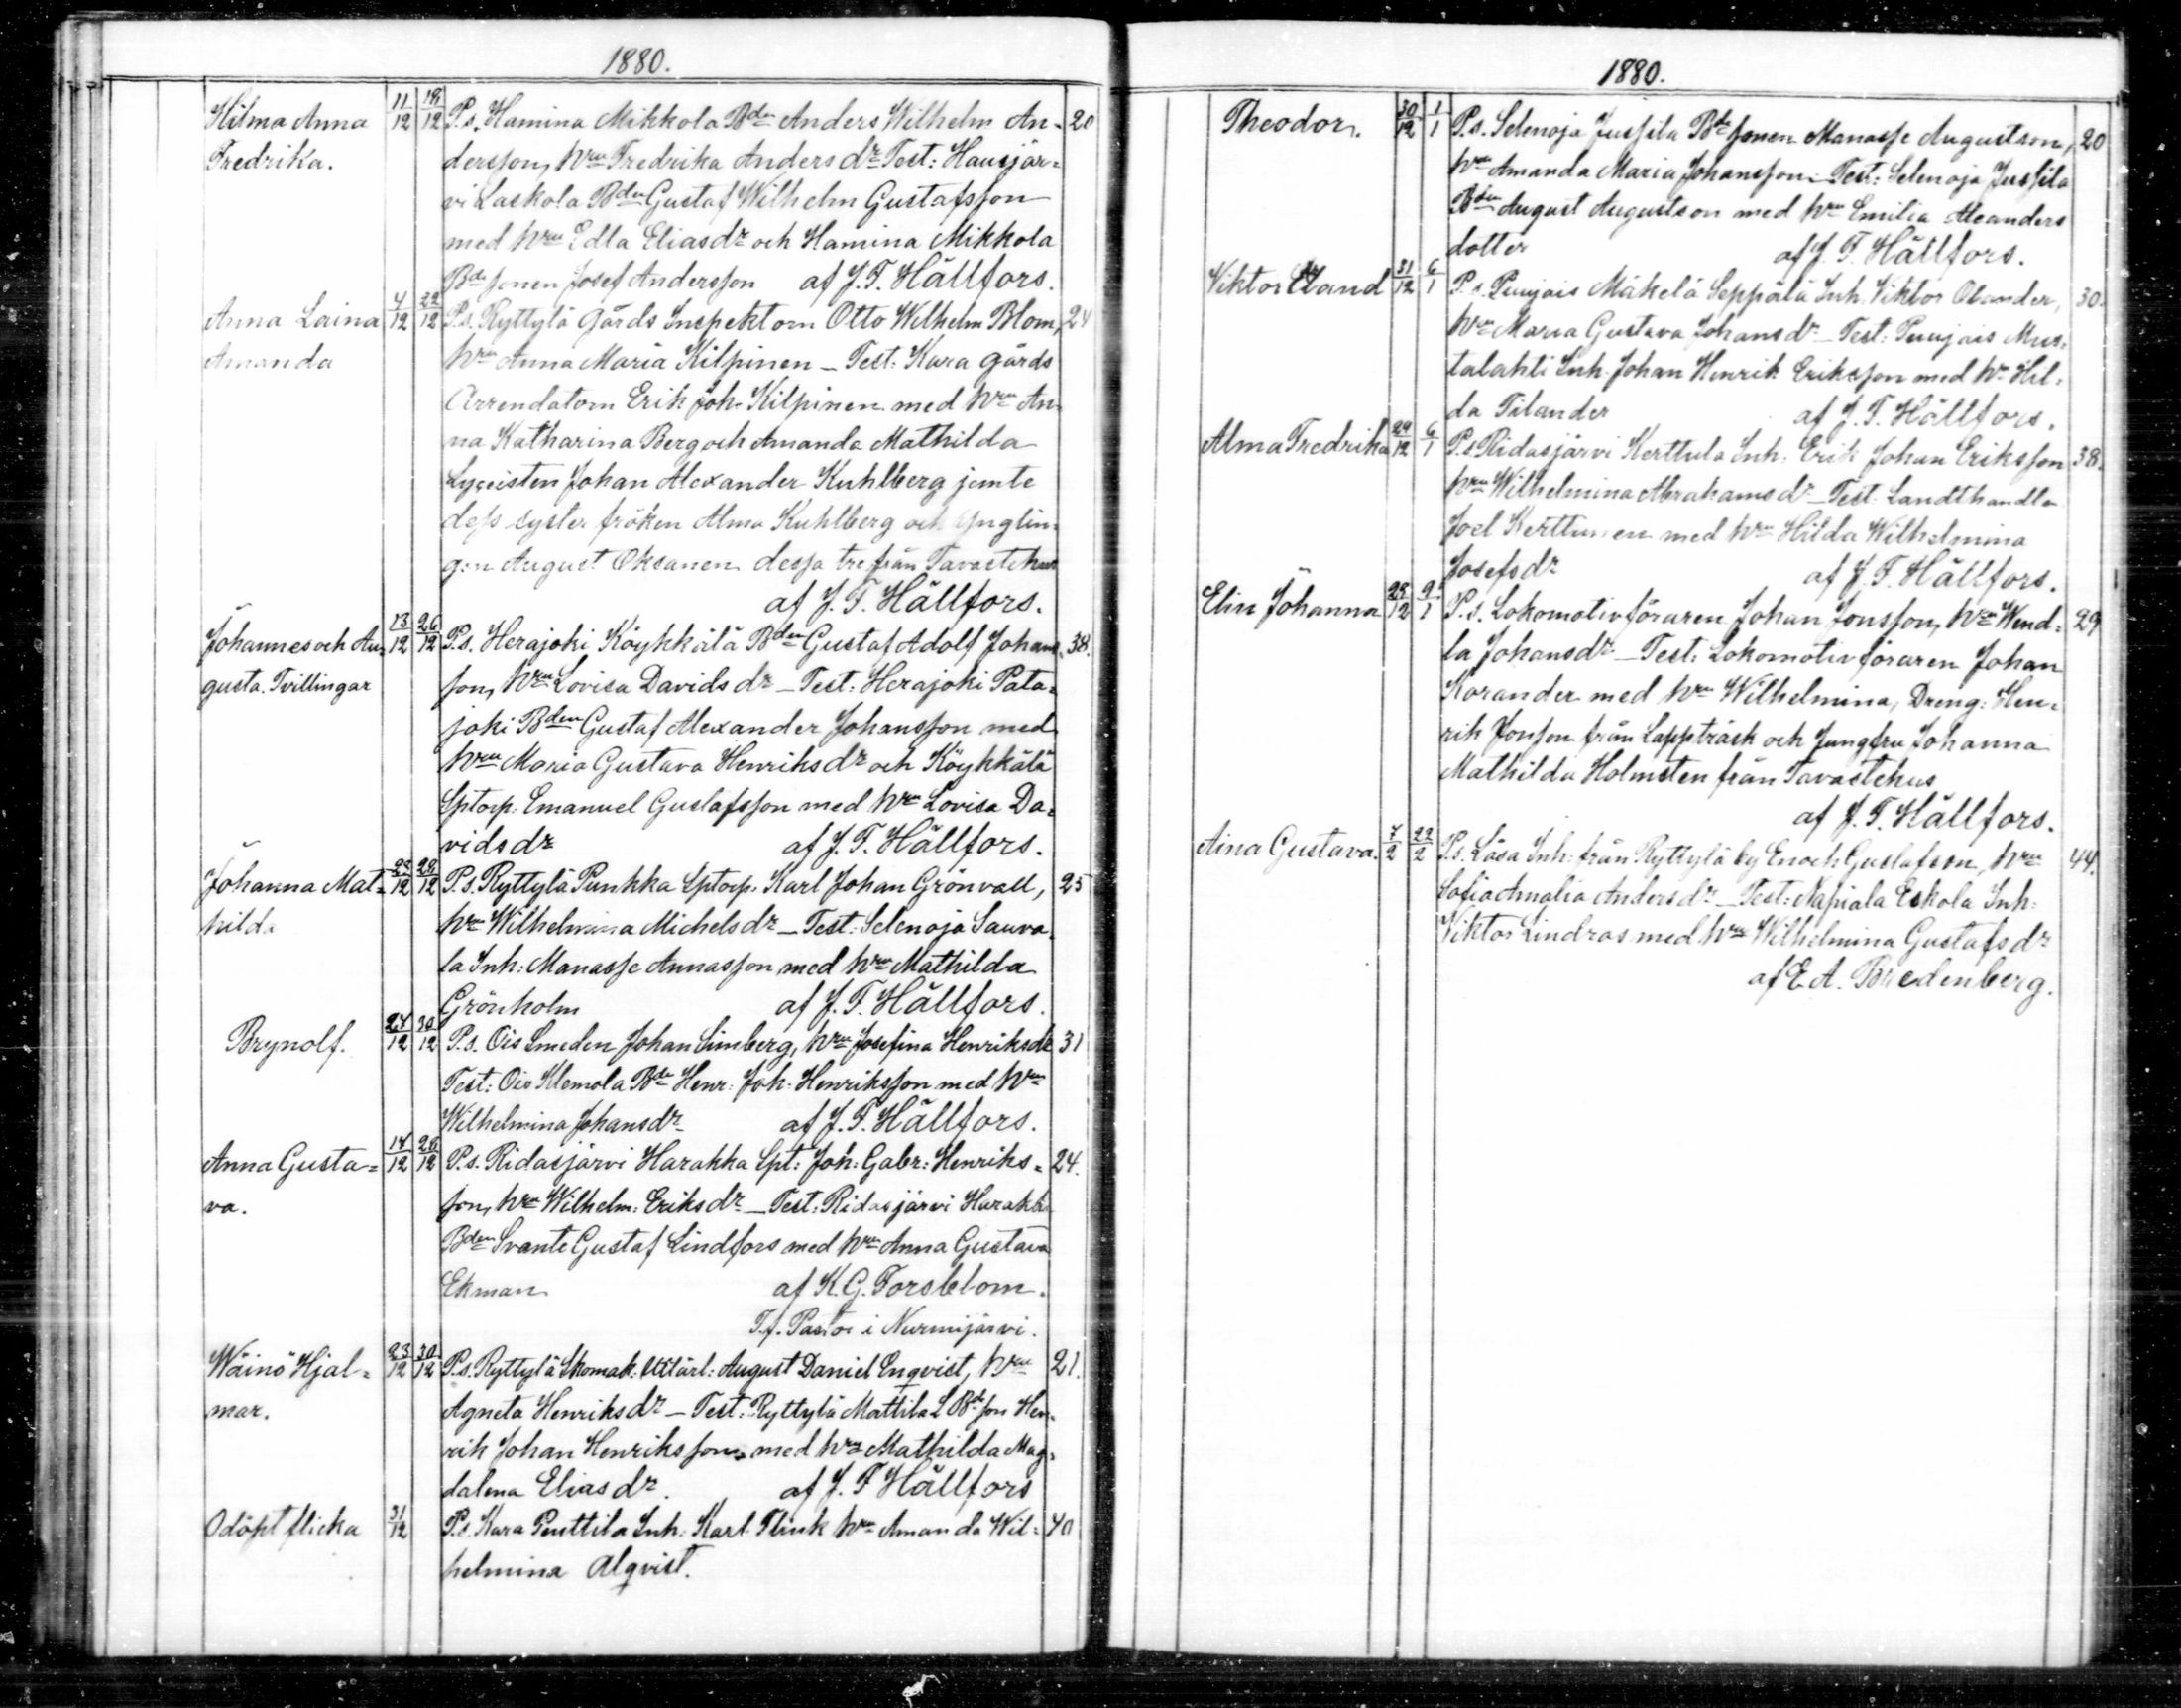 1880.
Hilma Anna 11/12 19/12 P.s. Hamina Mikkola Bden Anders Wilhelm An= 20
Fredrika. dersson, hru Fredrika Anders dr Test: Hausjär=
vi Laskola Bden Gustaf Wilhelm Gustafsson
med hru Edla Eliasdr och Hamina Mikkola
Bdesonen Josef Andersson af J. F. Hällfors.
Anna Laina 4/12 22/12 P.s. Ryttylä Gårds Inspektorn Otto Wilhelm Blom, 24
Amanda hru Anna Maria Kilpinen – Test: Kara gårds
Arrendatorn Erik Joh. Kilpinen med hru An=
na Katharina Berg och Amanda Mathilda
Lyceisten Johan Alexander Kuhlberg jemte
dess syster fröken Alma Kuhlberg och Ynglin=
gen August Oksanen dessa tre från Tavastehus
af J. F. Hällfors.
Johannes och Au= 13/12 26/12 P.s. Herajoki Köykkälä Bden Gustaf Adolf Johans= 38.
gusta. Tvillingar son, hru Lovisa Davids dr – Test: Herajoki Pata=
joki Bden Gustaf Alexander Johansson med
hru Maria Gustava Henriksdr och Köykkälä
Sptorp. Emanuel Gustafsson med hru Lovisa Da=
vidsdr af J. F. Hällfors.
Johanna Mat= 23/12 28/12 P.s. Ryttylä Punkka Sptorp: Karl Johan Grönvall, 25
hilda hru Wilhelmina Michelsdr – Test: Selenoja Sauva=
la Inh: Manasse Annasson med hru Mathilda
Grönholm af J. F. Hällfors.
Brynolf. 27/12 30/12 P.s. Ois Smeden Johan Simberg, hru Josefina Henriksdr 31
Test: Ois Klemola Bde Henr: Joh: Henriksson med hru
Wilhelmina Johansdr af J. F. Hällfors.
Anna Gusta= 14/12 26/12 P.s. Ridasjärvi Harakka Spt: Joh: Gabr: Henriks= 24.
va. son, hru Wilhelm: Eriksdr – Test: Ridasjärvi Harakka
Bden Svante Gustaf Lindfors med hru Anna Gustava
Ekman af K. G. Forsblom.
T.f. Pastor i Nurmijärvi.
Wäinö Hjal= 23/12 30/12 P.s. Ryttylä Skomak: August Daniel Enqvist, hru 21.
mar. Agneta Henriksdr – Test: Ryttylä Mattila L Bdeson Hen=
rik Johan Henriksson med hru Mathilda Mag=
dalena Eliasdr. af J. F Hällfors
Odöpt flicka 31/12 P.s. Kara Penttila Inh: Karl Flink hru Amanda Wil= 40
helmina Alqvist.
1880.
Theodor. 30/12 1/1 P.s. Selenoja Jussila Bdesonen Manasse Augustson, 20
hru Amanda Maria Johansson – Test: Selenoja Jussila
Bden August Augustson med hru Emilia Aleanders
dotter af J. F. Hällfors.
Viktor 31/12 6/1 P.s. Puujais Mäkelä Seppälä Inh. Viktor Olander, 30.
hru Maria Gustava Johansdr – Test: Puujais Mus=
talahti Inh. Johan Henrik Eriksson med hru Hil=
da Tilander af J. F. Hällfors.
Alma Fredrika 29/12 6/1 P.s. Ridasjärvi Kerttula Inh. Erik Johan Eriksson 38.
hru Wilhelmina Abrahamsdr – Test: Landthandla
Joel Kerttunen med hru Hilda Wilhelmina
Josefsdr af J. F. Hällfors.
Elin Johanna 28/12 9/1 P.s. Lokomotivföraren Johan Jonsson, hru Wend= 29
la Johansdr – Test: Lokomotivföraren Johan
Korander med hru Wilhelmina, Dreng: Hen=
rik Jonson från Lappträsk och Jungfru Johanna
Mathilda Holmsten från Tavastehus
af J. F. Hällfors.
Aina Gustava. 7/2 22/2 P.s. Lösa Inh: från Ryttylä by Enoch Gustafson, hru 44.
Sofia Amalia Andersdr – Test: Napiala Eskola Inh:
Viktor Lindras med hru Wilhelmina Gustafsdr
af E. A. Bredenberg.